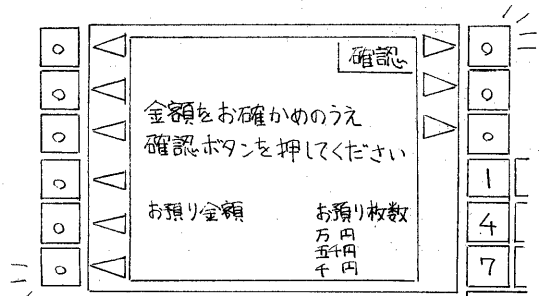 確認
金額をお確かめのうえ
確認ボタンを押してください
お預り金額 お預り枚数
万円
五千円
千円
1
4
7